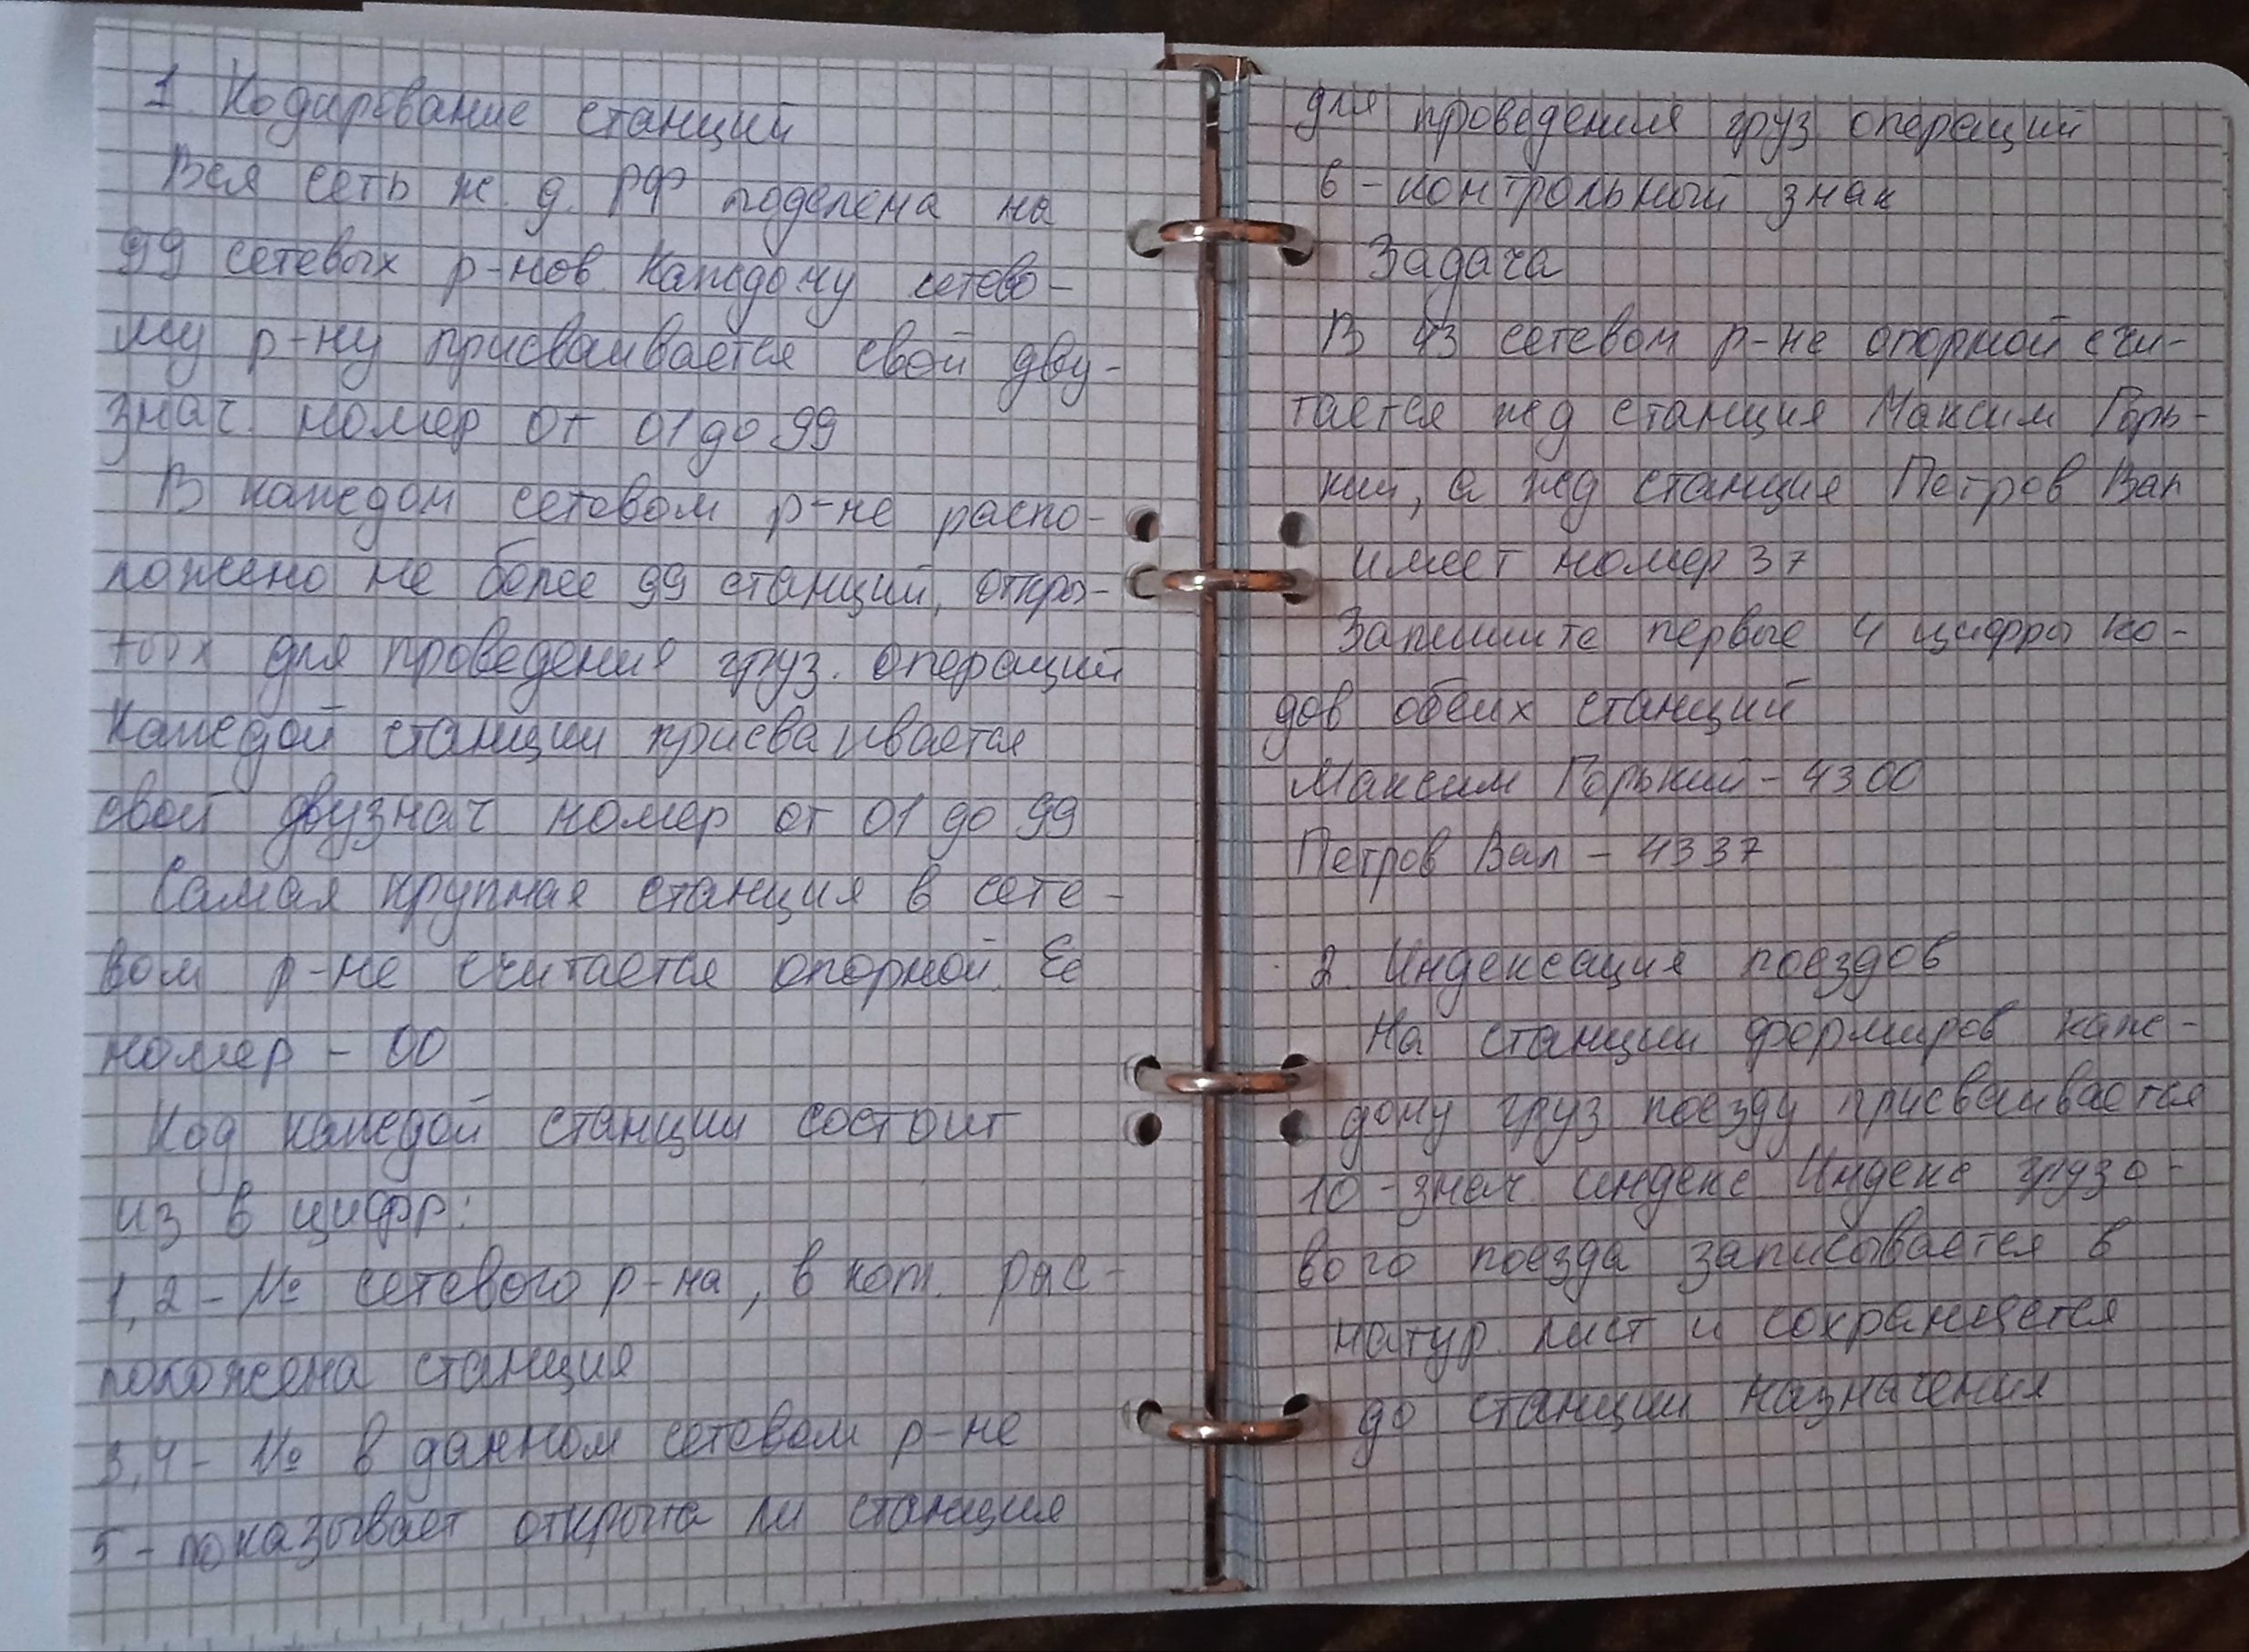 1. Кодирование станций
Вся сеть ж. д. РФ поделена на
99 сетевых р-нов. Каждому сетево-
му р-ну присваивается свой дву-
знач. номер от 01 до 99
В каждом сетовом р-не распо-
ложено не более 99 станций, откры-
тых для проведения груз. операций
Каждой станции присваивается
свой двузнач номер от 01 до 99
Самая крупная станция в сете-
вом р-не считается опорной. Ее
номер - 00
Код каждой станции состоит
из 6 цифр:
1,2 - № сетевого р-на, в кот. рас-
положена станция
3,4 - № в данном сетевом р-не
5 - показывает открыта ли станция
для проведения груз операций
6 - контрольный знак
Задача
В 43 сетевом р-не опорной счи-
тается жд станция Максим Горь-
кий, а жд станция Петров Вал
имеет номер 37
Запишите первые 4 цифры ко-
дов обеих станций
Максим Горький - 4300
Петров Вал - 4337
2. Индексация поездов
На станции формиров каж-
дому груз поезду присваивается
10-знач. индекс Индекс грузо-
вого поезда записывается в
натур. лист и сохраняется
до станции назначения